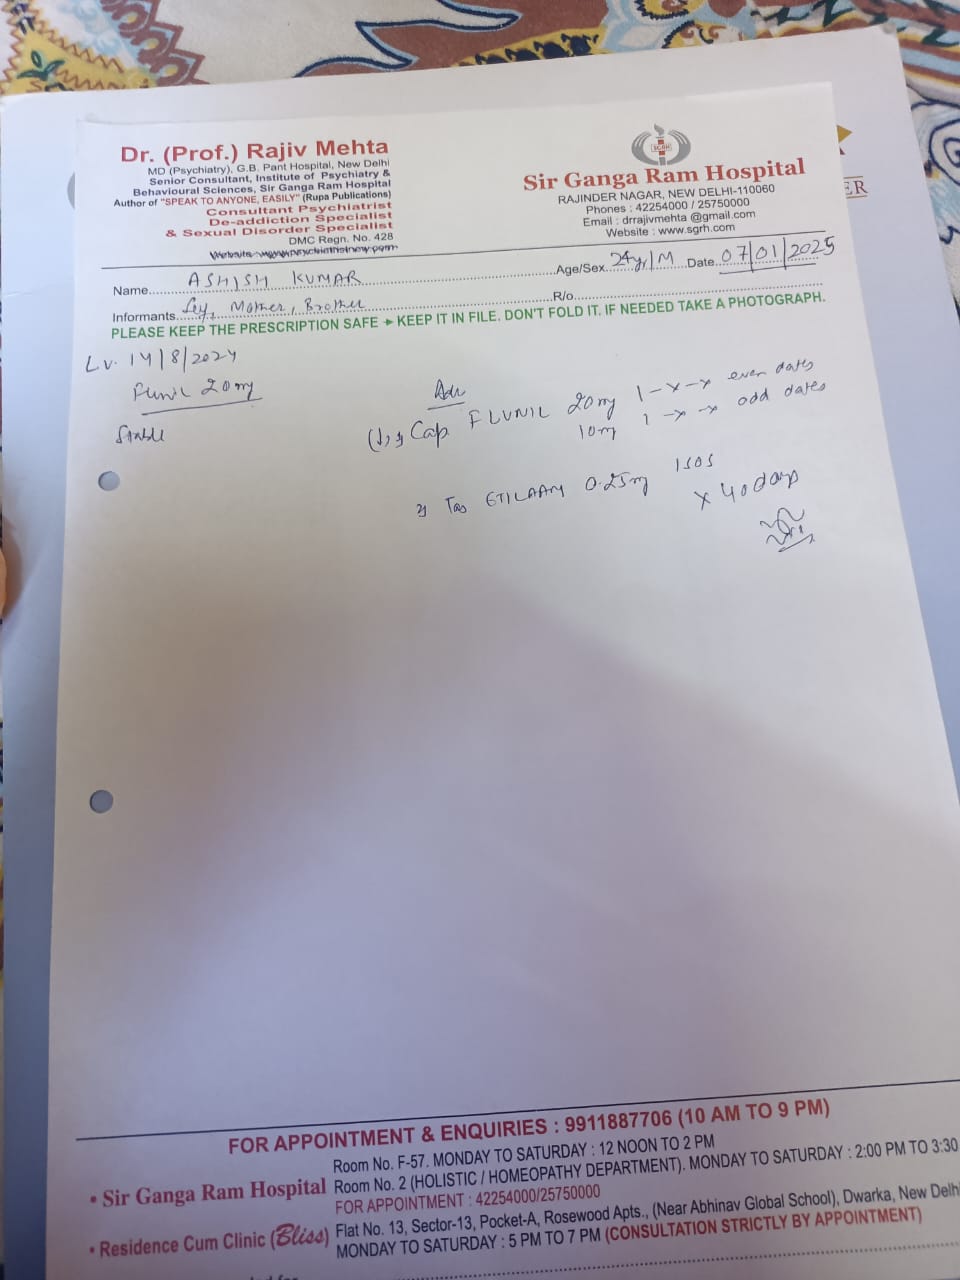 Dr. (Prof.) Rajiv Mehta
MD (Psychiatry), G.B. Pant Hospital, New Delhi
Senior Consultant, Institute of Psychiatry &
Behavioural Sciences, Sir Ganga Ram Hospital
Author of "SPEAK TO ANYONE, EASILY" (Rupa Publications)
Consultant Psychiatrist
De-addiction Specialist
& Sexual Disorder Specialist
DMC Regn. No. 428
SGRH
Sir Ganga Ram Hospital
RAJINDER NAGAR, NEW DELHI-110060
Phones : 42254000 / 25750000
Email : drrajivmehta @gmail.com
Website : www.sgrh.com
ER
Name ASHISH KUMAR Age/Sex 24yr/M Date 07/01/2025
Informants Mother, Brother R/o
PLEASE KEEP THE PRESCRIPTION SAFE KEEP IT IN FILE. DON'T FOLD IT. IF NEEDED TAKE A PHOTOGRAPH.
L.V. 14/8/2024
Flunil 20mg
Stable
Adv
Cap FLUNIL 20mg 1-x-x even dates
10mg 1-x-x odd dates
Tab ETILAAM 0.25mg 1SOS
x 40 days
FOR APPOINTMENT & ENQUIRIES : 9911887706 (10 AM TO 9 PM)
• Sir Ganga Ram Hospital
Room No. F-57. MONDAY TO SATURDAY : 12 NOON TO 2 PM
Room No. 2 (HOLISTIC / HOMEOPATHY DEPARTMENT). MONDAY TO SATURDAY : 2:00 PM TO 3:30
FOR APPOINTMENT : 42254000/25750000
• Residence Cum Clinic (Bliss)
Flat No. 13, Sector-13, Pocket-A, Rosewood Apts., (Near Abhinav Global School), Dwarka, New Delhi
MONDAY TO SATURDAY : 5 PM TO 7 PM (CONSULTATION STRICTLY BY APPOINTMENT)